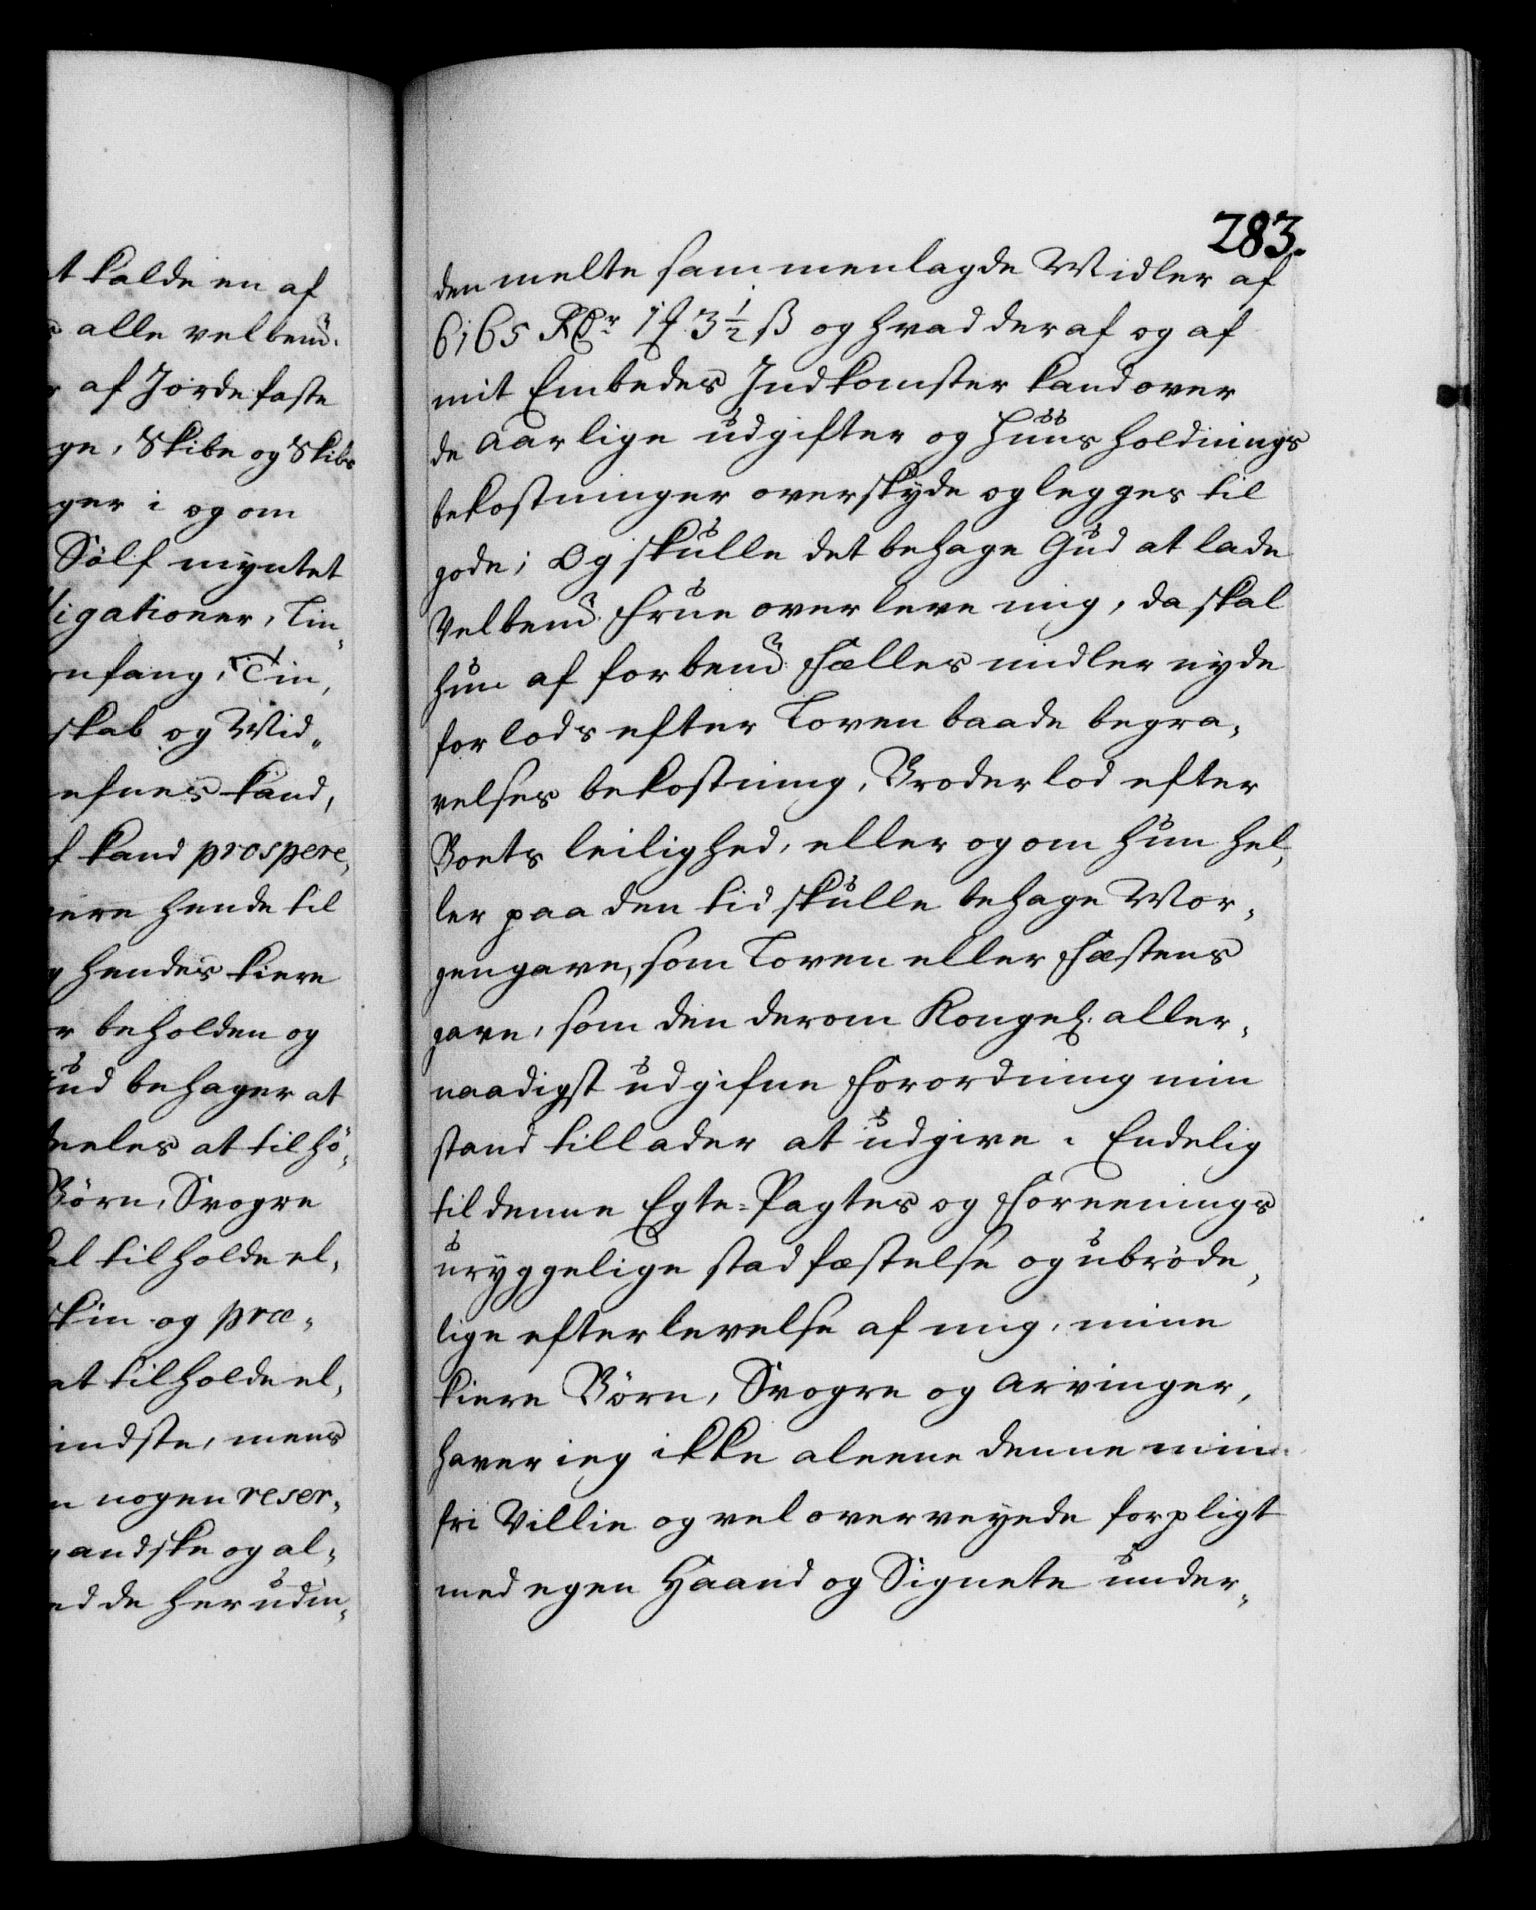 t kalde en af
alle velbem:
af Jordefaste
ge, Skibe og Skibs
ger i og om
Sølf myntet
ligationer, Lin„
nfang, Tin,
skab og Mid„
efnes kand,
f kand prospere„
ere hende til
hendes kiere
r beholden og
Gud behager at
deeles at tilhö„
Börn, Svogre
al tilholde el„
skin og præ„
at tilholde el„
indste, mens
n nogen reser„
gandske og al„
ed de herudin„
283.
den melte sammenlagde Midler af
6165 Rdr 1 ƒ 3 1/2 ß og hvad deraf og af
mit Embedes Indkomster kand over
de aarlige udgifter og Huus holdnings
bekostninger overskyde og legges til
gode; Og skulle det behage Gud at lade
Velbem: Frue overleve mig, da skal
hun af forbem: Fælles midler nyde
forlods efter Loven baade begra„
velses bekostning, Broderlod efter
Boets leilighed, eller og om hun hel„
ler paa den tid skulle behage Mor„
gengave, som Loven eller Fæstens
gave, som den derom Kongel: aller„
naadigst udgifne Forordning min
stand tillader at udgive. Endelig
til denne Egte-Pagtes og Foreenings
uryggelige stadfæstelse og ubröde„
lige efterlevelse af mig, mine
kiere Börn, Svogre og Arvinger,
haver ieg ikke aleene denne min
fri Villie og vel overveyede forpligt
med egen Haand og Signete under„